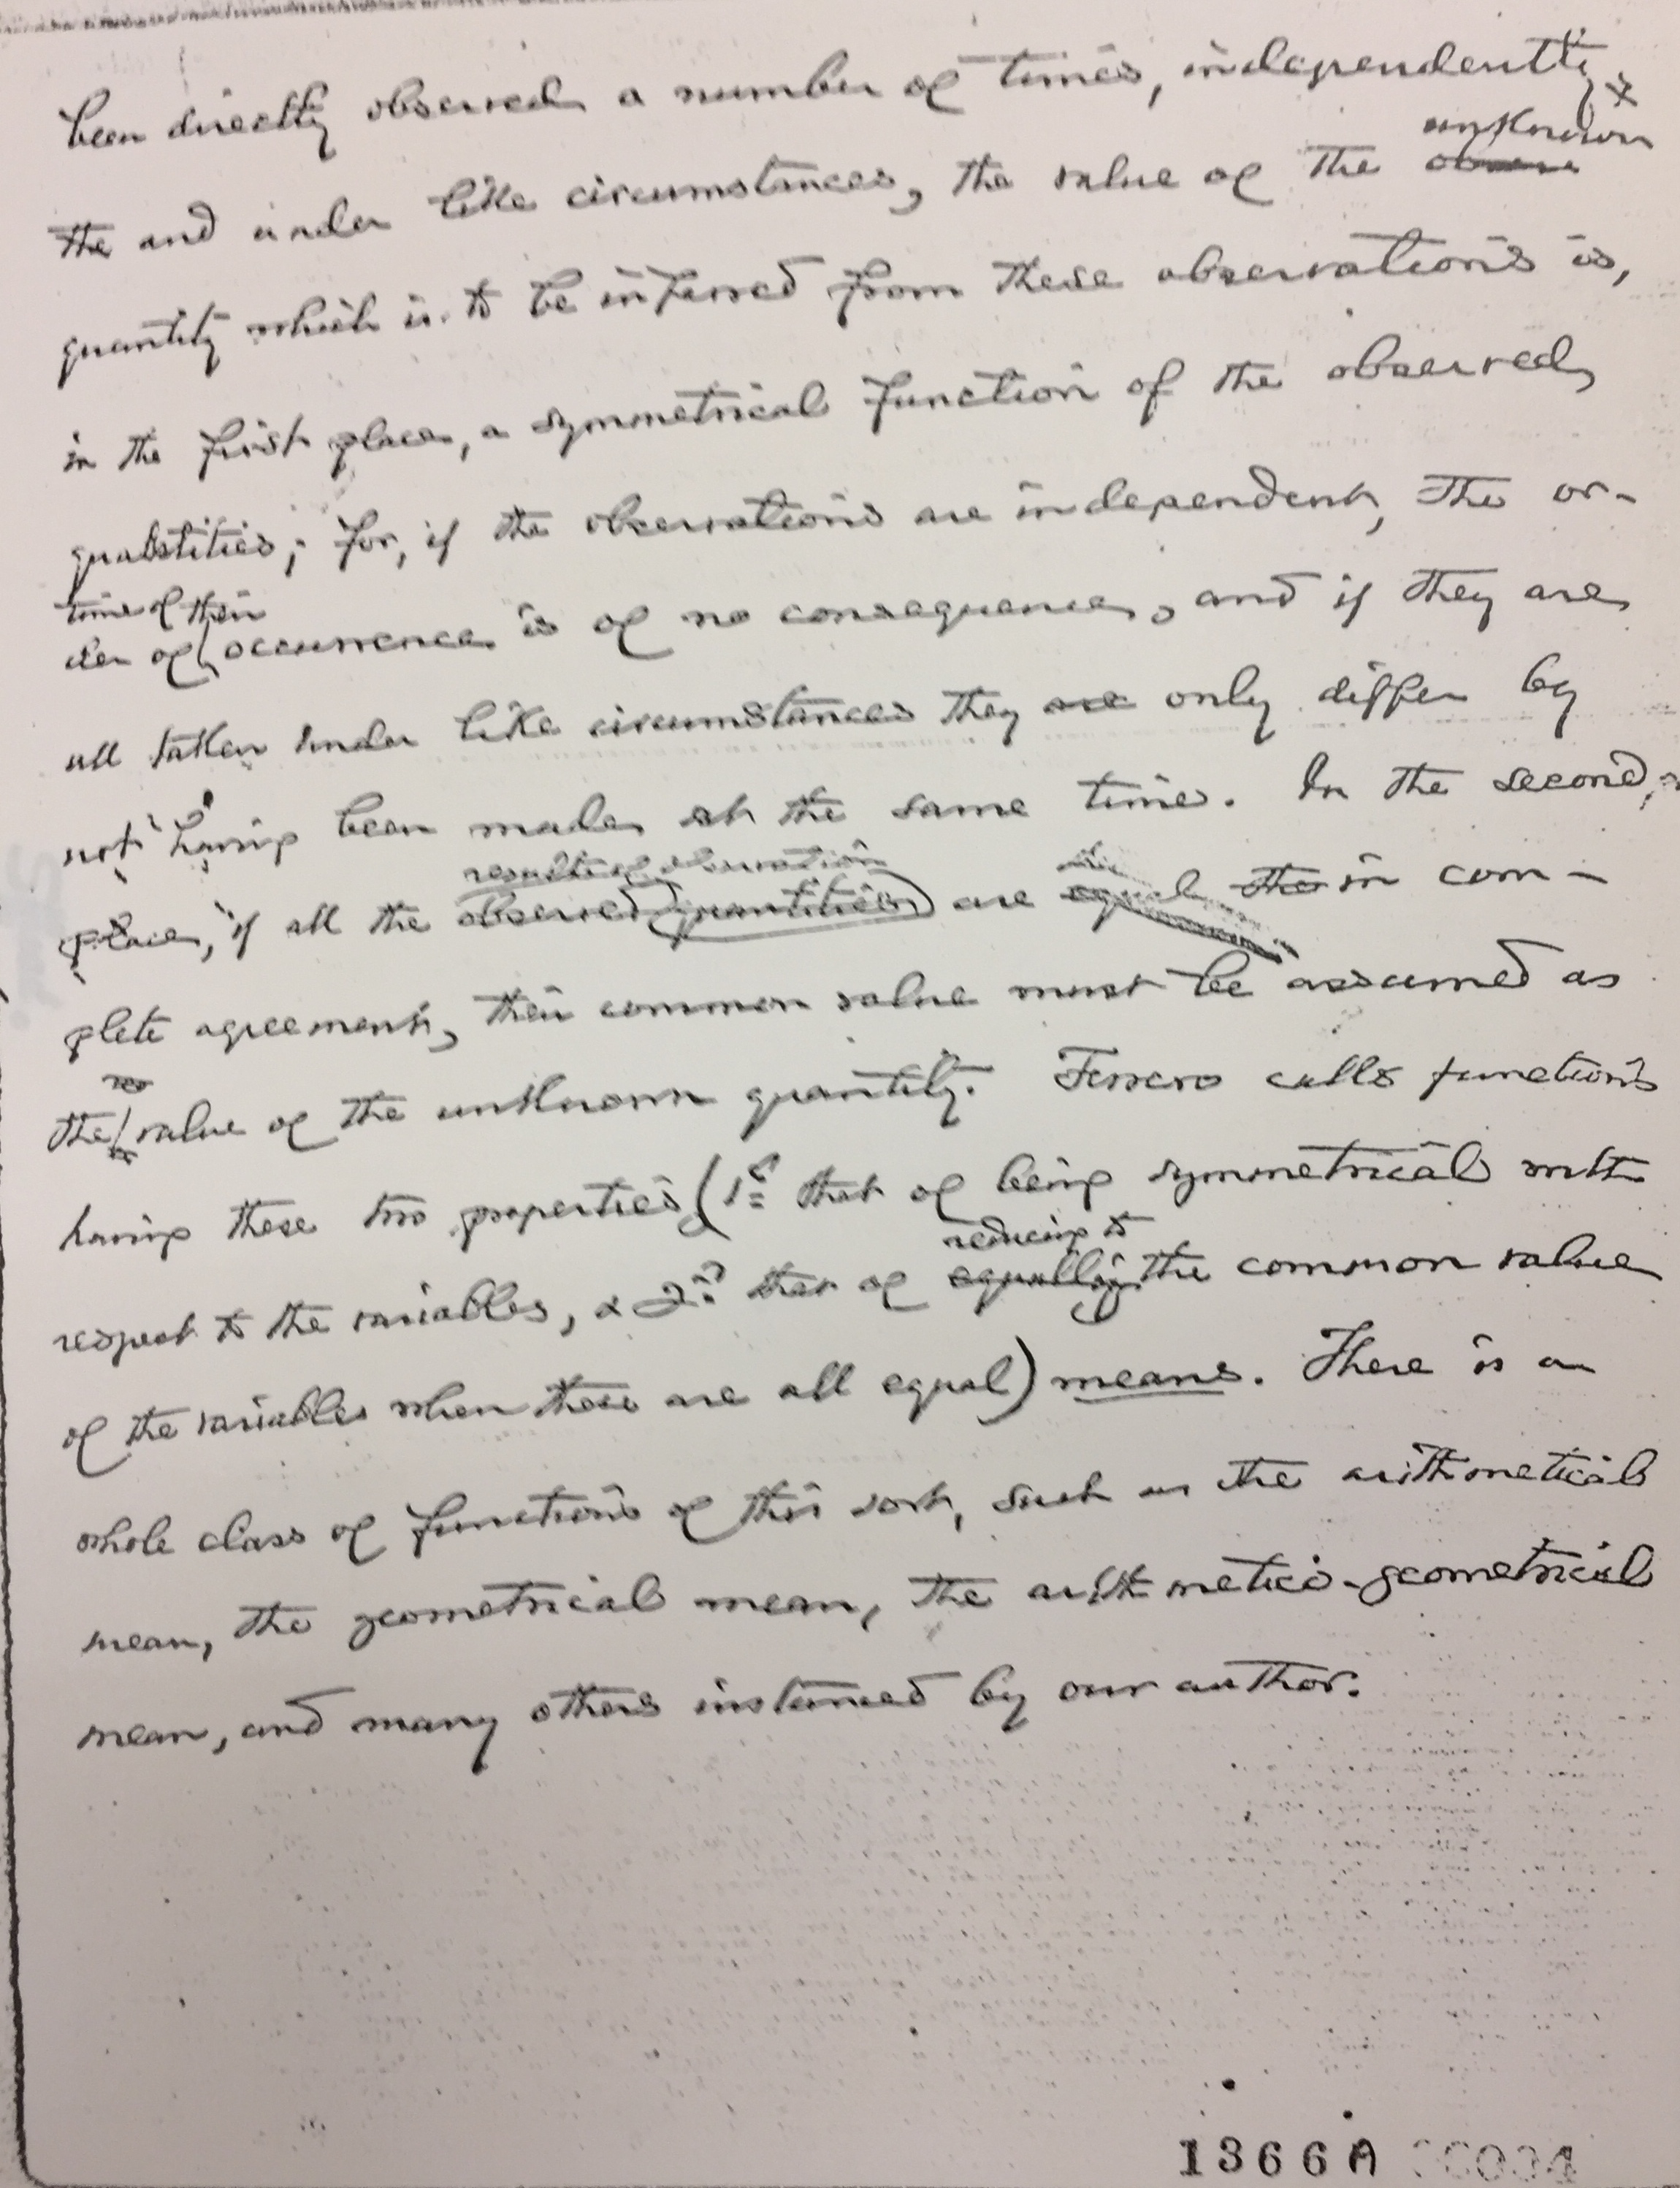 been directly observed a number of times, independently
unknown
the and under like circumstances, the value of the
quantity which is to be inferred from these observations is,
in the first place, a symmetrical function of the observed
quantities; for, if the observations are independent, the or-
time of their
der of occurrence is of no consequence, and if they are
all taken under like circumstances they are only differ by
not having been made at the same time. In the second
results of observation
place, if all the observed quantities are equal in com-
plete agreement, their common value must be assumed as
the value of the unknown quantity. Ferrero calls functions
having these two properties (1st that of being symmetrical with
reducing to
respect to the variables, & 2nd that of equalling the common value
of the variables when these are all equal) means. There is a
whole class of functions of this sort, such as the arithmetical
mean, the geometrical mean, the arithmetico-geometrical
mean, and many others instanced by our author.
1366A